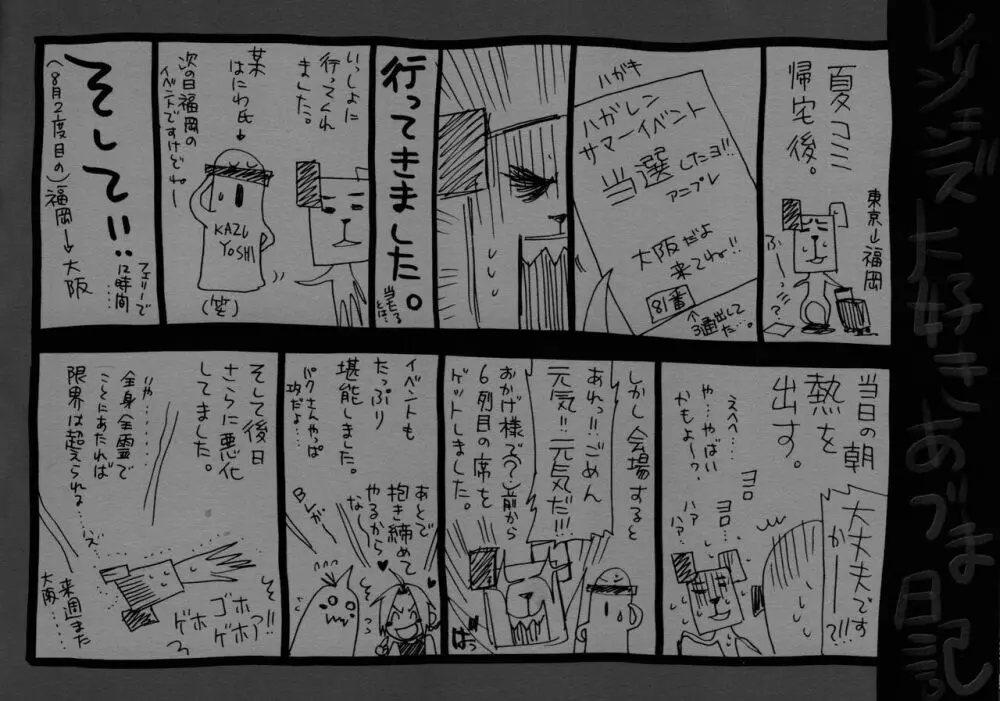 レジェンズ大好きあづま日記。
夏コミ
帰宅後。
東京→福岡
ふーっ…?
ハガキ
ハガレン
サマーイベント
当選したヨ!!
アニプレ
大阪だよ
来てね!!
81番
↑3通出してた…。
行ってきました。
当たるとは…
いっしょに
行ってくれ
ました。
某
はにわ氏
次の日福岡の
イベントですけどねー
KAZU
YOSHI
(笑)
そして!!
フェリーで
12時間……
(8月2度目の)福岡→大阪
当日の朝
熱を
出す。
大丈夫です
かー!!?
えへへ…
や…やばい
かもよ〜?
ヨロ
ヨロ…
ハァ
ハァ
しかし会場すると
あれっ!!ごめん
元気!!元気だ!!!
おかげ様で(?)前から
6列目の席を
ゲットしました。
ばっ
イベントも
たっぷり
堪能しました。
パクさんやっぱ
攻だよ…
あとで
抱き締めて
やるから
な〜
Bしが…
そして後日
さらに悪化
してました。
いや………
全身全霊で
ことにあたれば
限界は超えられる……
ゲホ
ゴホ
ゲホァ!!
来週また
大阪……